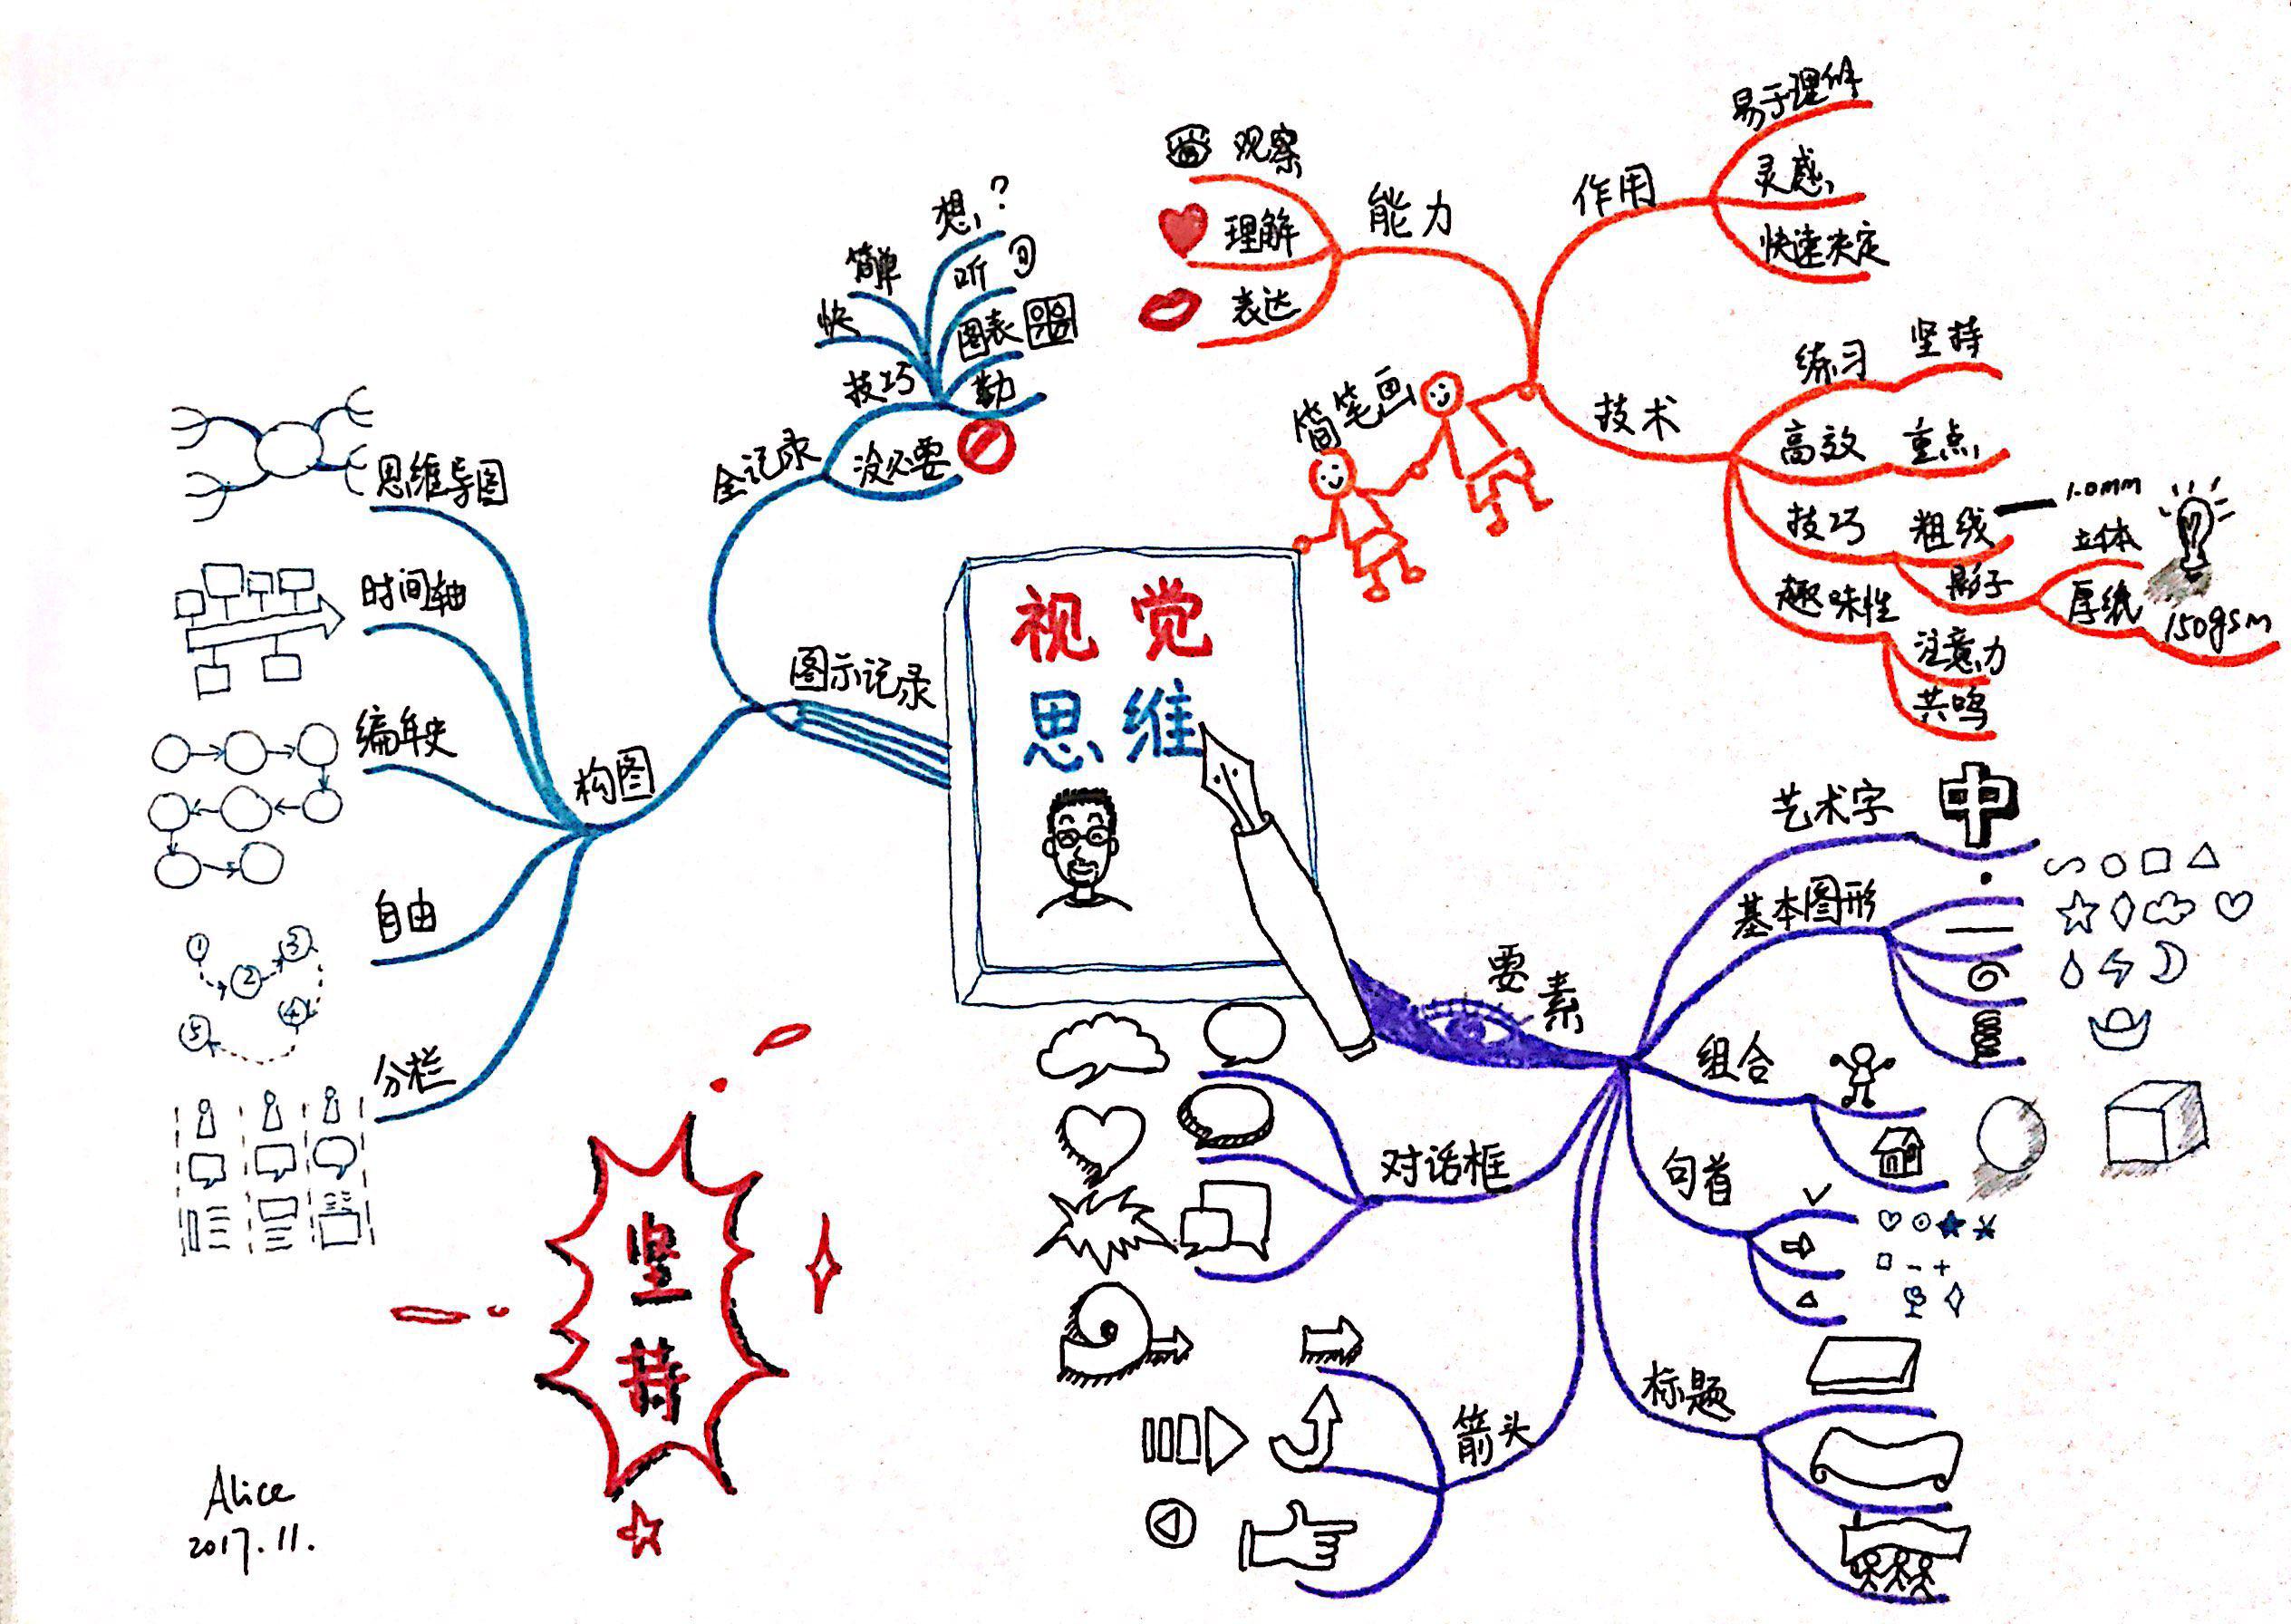 视觉
思维
简笔画
作用
易于理解
灵感
快速决定
能力
观察
理解
表达
技术
练习 坚持
高效 重点
技巧 粗线 1.0mm
影子 立体
厚纸 150gsm
趣味性
注意力
共鸣
要素
艺术字 中
基本图形
组合
句首
标题
箭头
对话框
图示记录
全记录
技巧
快
简单
想?
听
图表
勤
没必要
构图
思维导图
时间轴
编年史
自由
1
2
3
4
5
分栏
坚
持
Alice
2017.11.